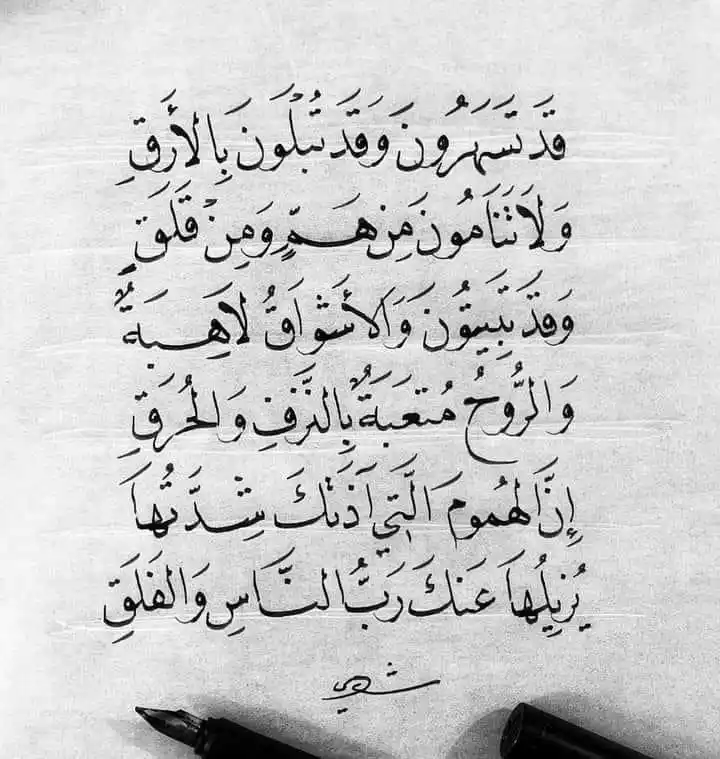 قَدْ تَسْهَرُونَ وَقَدْ تُبْلَونَ بِالأَرَقِ
وَلَا تَنَامُونَ مِنْ هَمٍّ وَمِنْ قَلَقٍ
وَقَدْ تَبِيتُونَ وَالأَشْوَاقُ لَاهِبَةٌ
وَالرُّوحُ مُتْعَبَةٌ بِالنَّزْفِ وَالحُرَقِ
إِنَّ الهُمُومَ الَّتِي آذَتْكَ شِدَّتُهَا
يُزِيلُهَا عَنْكَ رَبُّ النَّاسِ وَالفَلَقِ